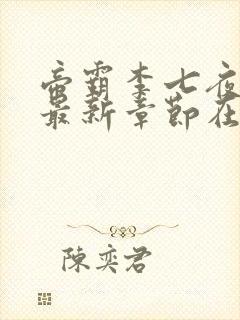 帝霸李七夜
最新章節在
陳奕君